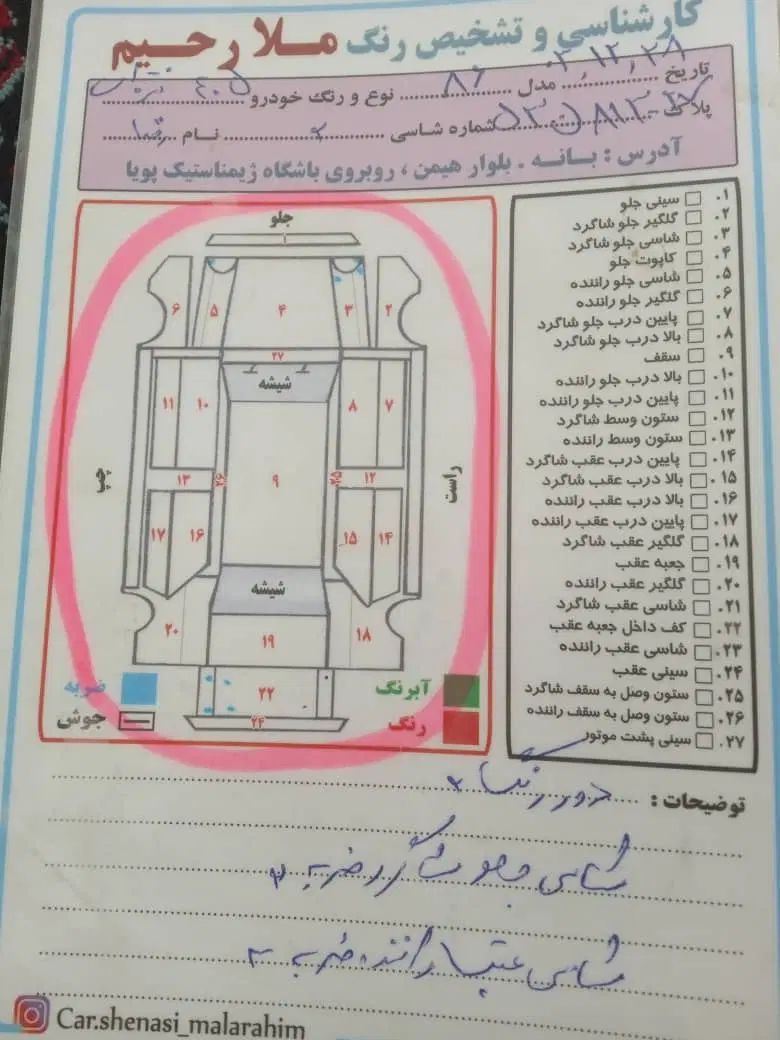 کارشناسی و تشخیص رنگ ملا رحیم
تاریخ ۰۳،۱۲،۲۸ مدل ۸۶ نوع و رنگ خودرو ۴۰۵
پلاک شماره شاسی نام
آدرس : بـانـه . بلوار هیمن ، روبروی باشگاه ژیمناستیک پویا
۰۱ سینی جلو
۰۲ گلگیر جلو شاگرد
۰۳ شاسی جلو شاگرد
۰۴ کاپوت جلو
۰۵ شاسی جلو راننده
۰۶ گلگیر جلو راننده
۰۷ پایین درب جلو شاگرد
۰۸ بالا درب جلو شاگرد
۰۹ سقف
۰۱۰ بالا درب جلو راننده
۰۱۱ پایین درب جلو راننده
۰۱۲ ستون وسط شاگرد
۰۱۳ ستون وسط راننده
۰۱۴ پایین درب عقب شاگرد
۰۱۵ بالا درب عقب شاگرد
۰۱۶ بالا درب عقب راننده
۰۱۷ پایین درب عقب راننده
۰۱۸ گلگیر عقب شاگرد
۰۱۹ جعبه عقب
۰۲۰ گلگیر عقب راننده
۰۲۱ شاسی عقب شاگرد
۰۲۲ کف داخل جعبه عقب
۰۲۳ شاسی عقب راننده
۰۲۴ سینی عقب
۰۲۵ ستون وصل به سقف شاگرد
۰۲۶ ستون وصل به سقف راننده
۰۲۷ سینی پشت موتور
جلو
۱
۲ ۳ ۴ ۵ ۶
۲۷
شیشه
۷ ۸ ۱۰ ۱۱
راست ۱۲ ۲۵ ۹ ۲۶ ۱۳ چپ
۱۴ ۱۵ ۱۶ ۱۷
شیشه
۱۸ ۱۹ ۲۰
آبرنگ ۲۲ ضربه
رنگ ۲۴ جوش
توضیحات : دور رنگ
شاسی جلو شاگرد ضربه
شاسی عقب راننده ضربه
Car.shenasi_malarahim